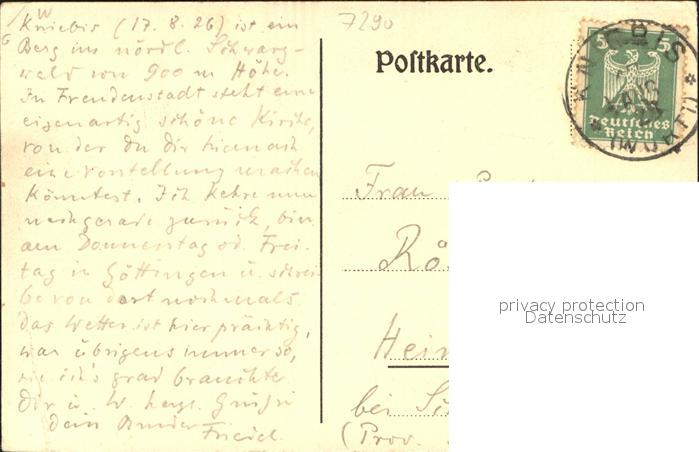 7290
Kniebis (17.8.26) ist ein
Berg im nördl. Schwarz-
wald von 900 m Höhe.
In Freudenstadt steht eine
eigenartig schöne Kirche,
von der Du dir hienach
eine Vorstellung machen
könntest. Ich kehre nun
nachgerade zurück, bin
am Donnerstag od. Frei-
tag in Göttingen u. schrei-
be von dort nochmals.
Das Wetter ist hier prächtig,
war übrigens immer so,
wie ich's grad brauchte
Dir u. W. herzl. Grüße
Dein Bruder
Friedel.
Postkarte.
5 5
Deutsches
Reich
KNIEBIS
Frau
Rö
Hein
bei
(Prov.
privacy protection
Datenschutz